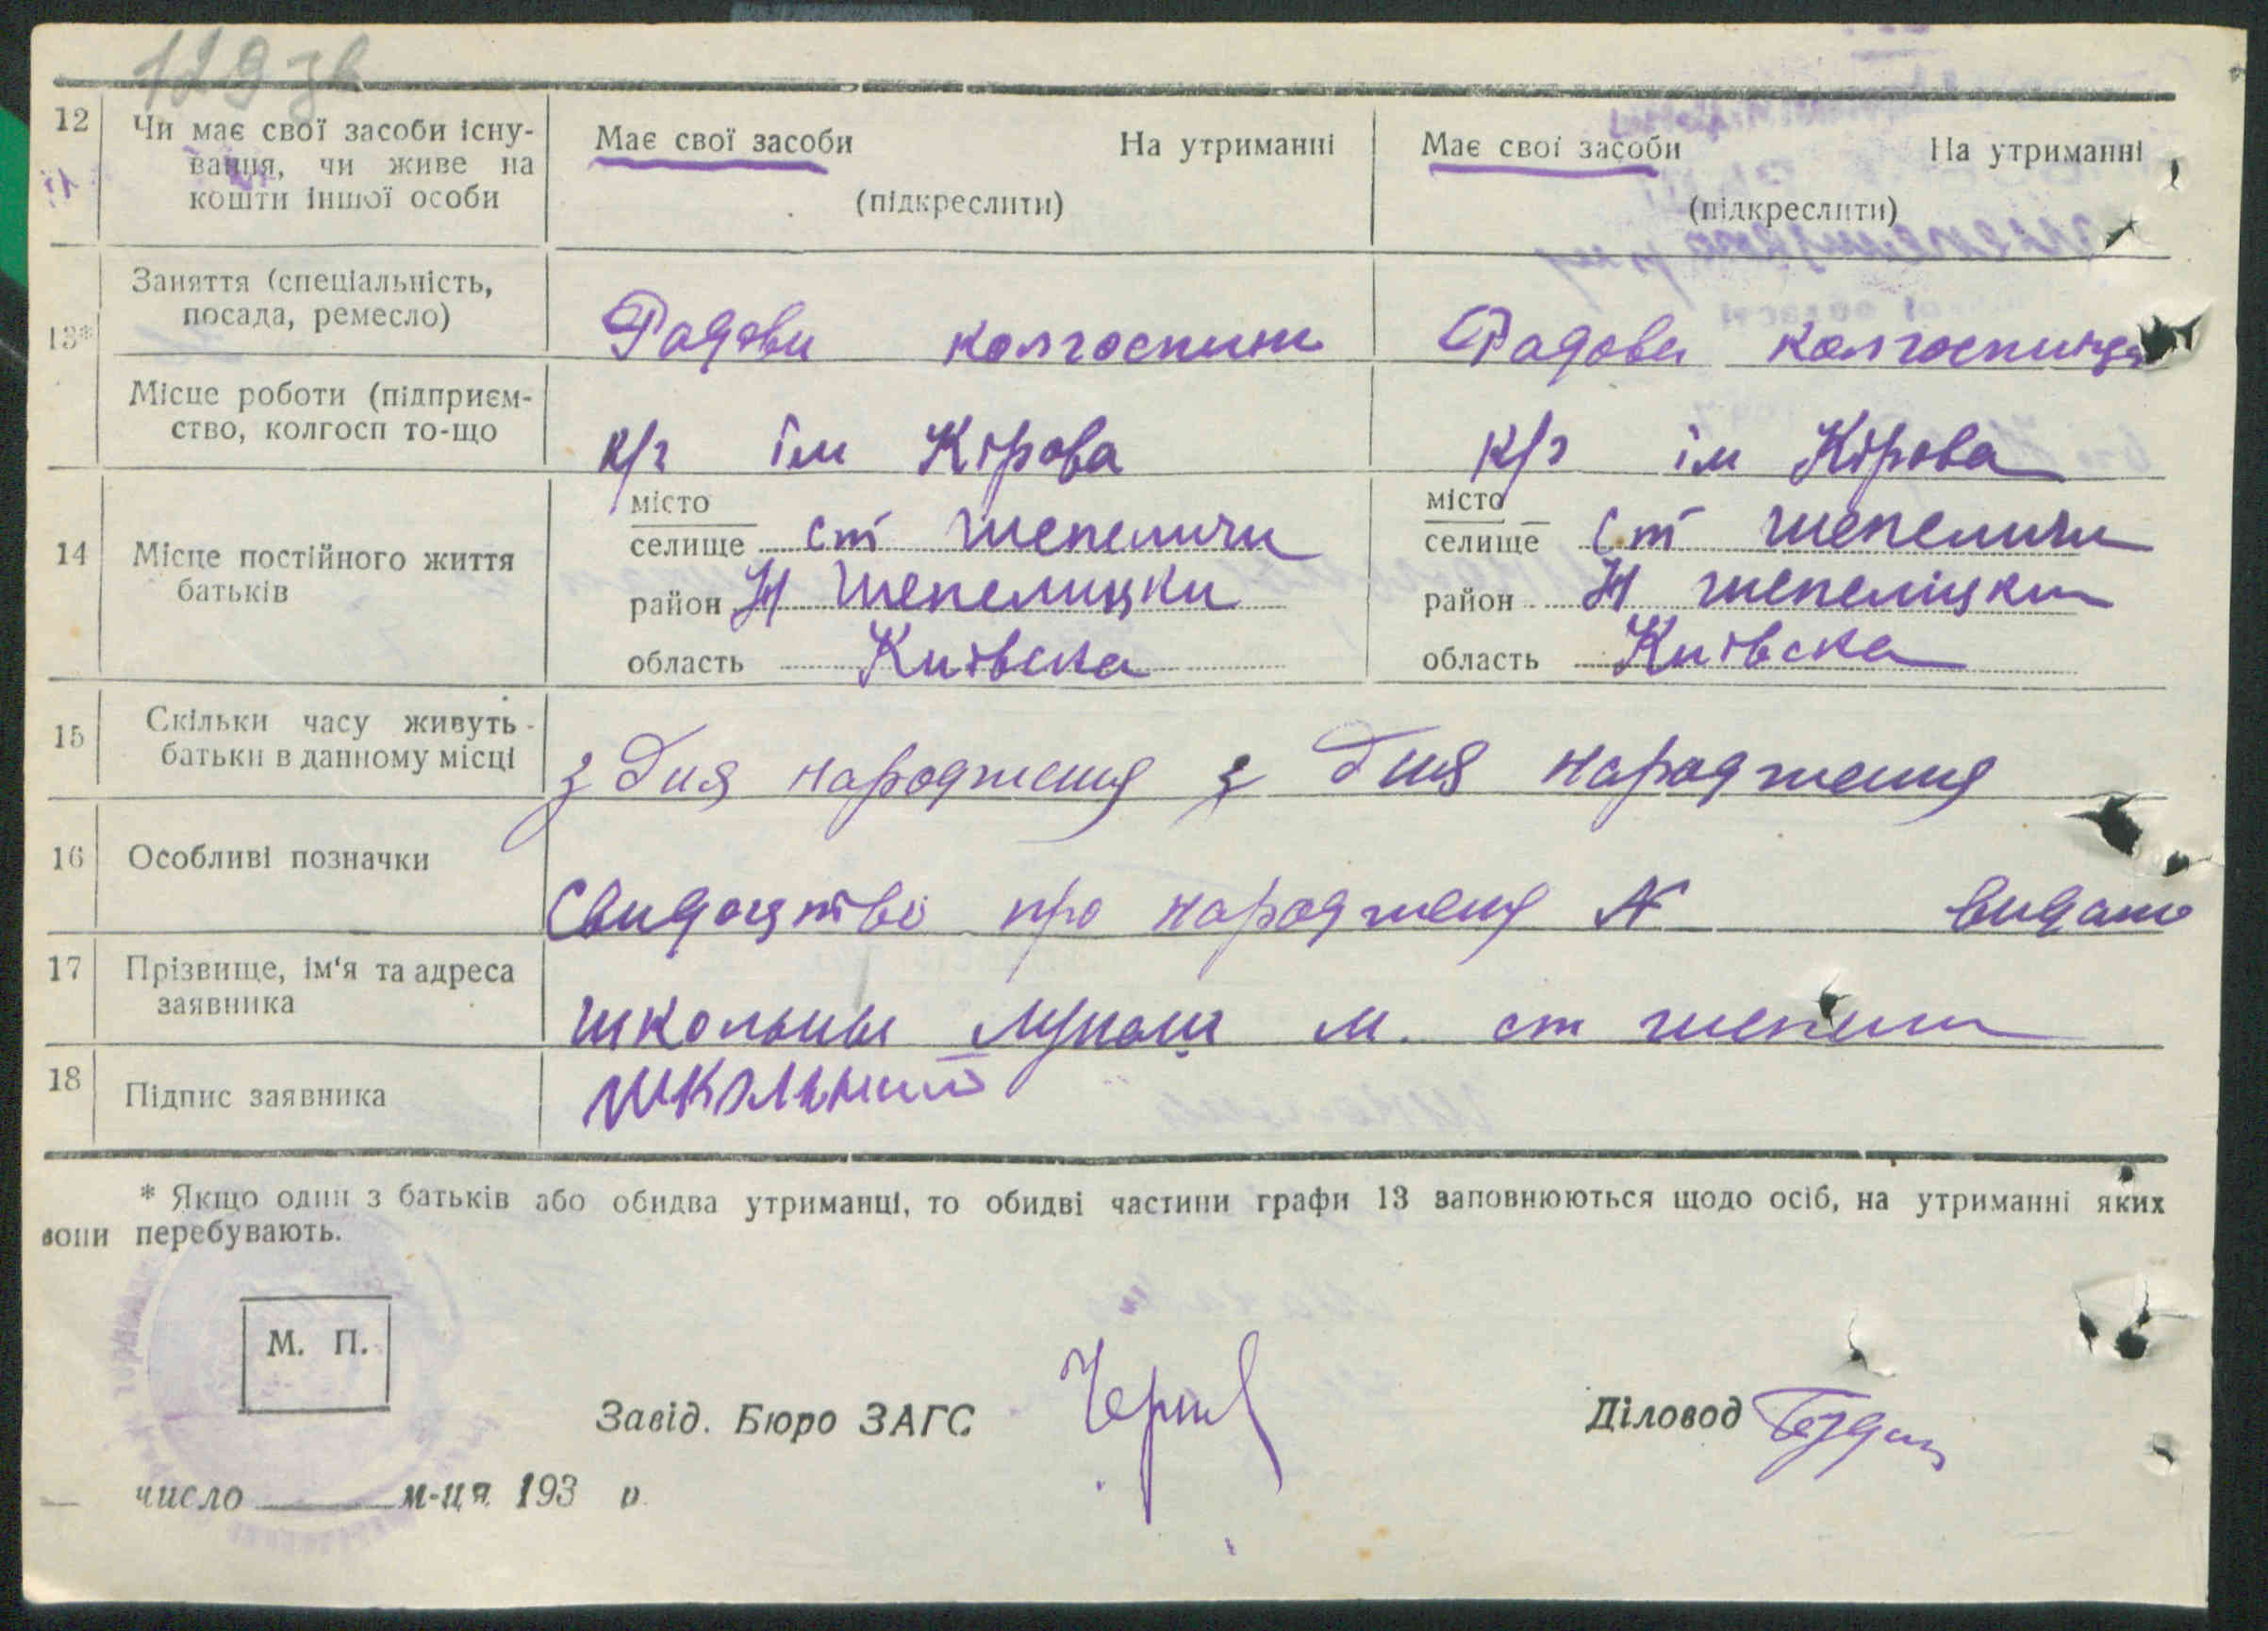 129 зв
12 Чи має свої засоби існу-
вання, чи живе на
кошти іншої особи
Має свої засоби На утриманні
(підкреслити)
Має свої засоби На утриманні
(підкреслити)
13* Заняття (спеціальність,
посада, ремесло)
Радови колгоспник
Радова колгоспниця
Місце роботи (підприєм-
ство, колгосп то-що
к/г ім Кірова
к/г ім Кірова
14 Місце постійного життя
батьків
місто
селище ст шепеличи
район Н шепелицки
область Київска
місто
селище ст шепеличи
район Н шепеліцки
область Київска
15 Скільки часу живуть
батьки в данному місці
з дня народженя з дня народженя
16 Особливі позначки
Свидоцтво про народженя № видано
17 Прізвище, ім'я та адреса
заявника
школьны м. ст шепели
18 Підпис заявника
школьний
* Якщо один з батьків або обидва утриманці, то обидві частини графи 13 заповнюються щодо осіб, на утриманні яких
вони перебувають.
М. П.
Завід. Бюро ЗАГС
Діловод
число м-ця 193 р.